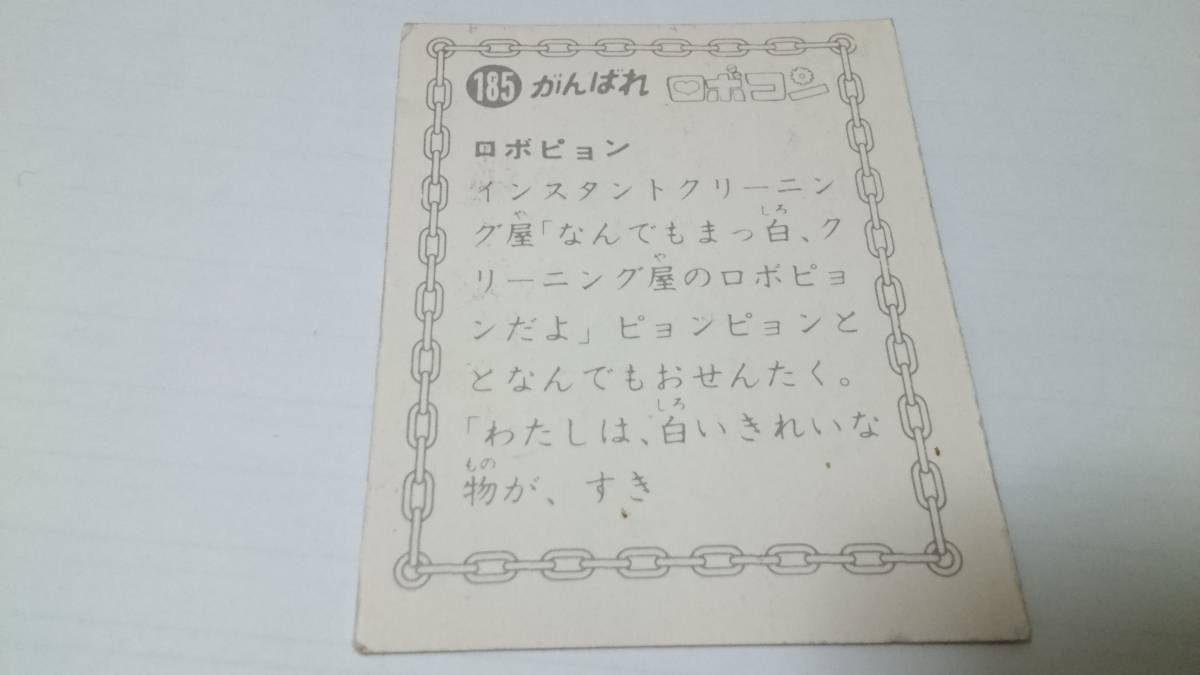 185 がんばれ ロボコン
ロボピョン
インスタントクリーニン
グ屋「なんでもまっ白、ク
リーニング屋のロボピョ
ンだよ」ピョンピョンと
となんでもおせんたく。
「わたしは、白いきれいな
物が、すき